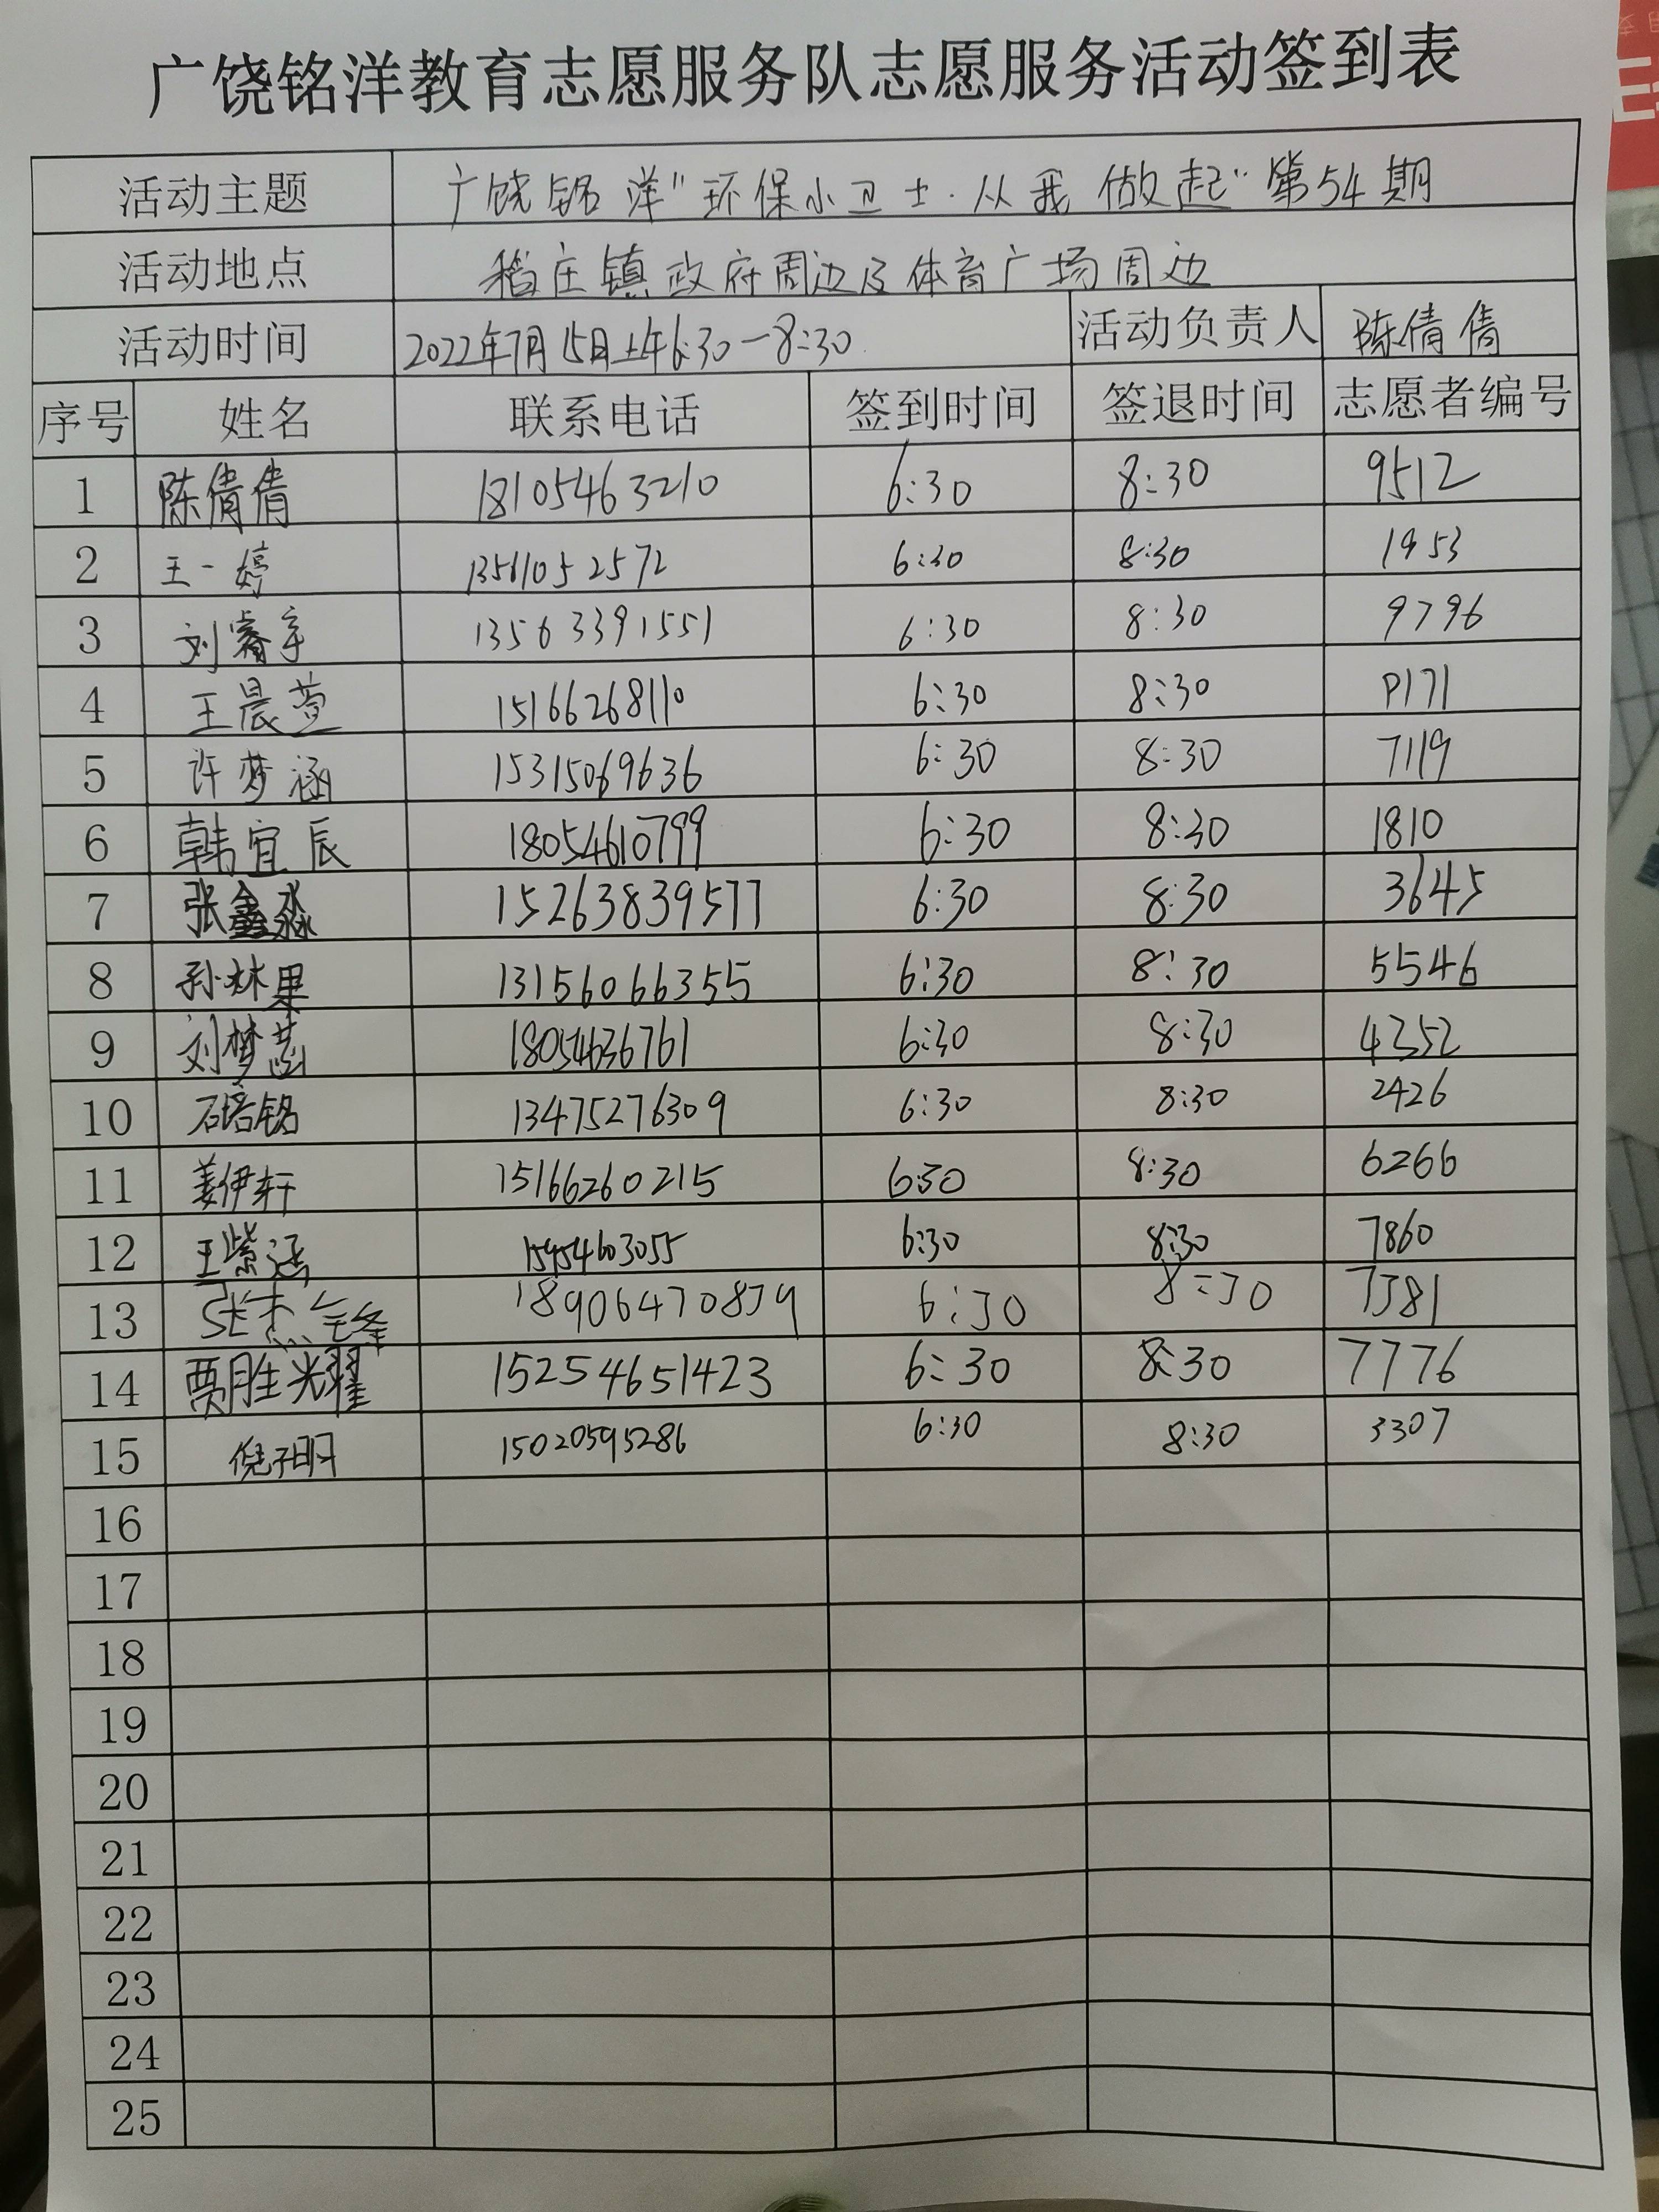 广饶铭洋教育志愿服务队志愿服务活动签到表
活动主题 广饶铭洋"环保小卫士·从我做起"第54期
活动地点 稻庄镇政府周边及体育广场周边
活动时间 2022年7月15日上午6:30-8:30 活动负责人 陈倩倩
序号 姓名 联系电话 签到时间 签退时间 志愿者编号
1 陈倩倩 18105463210 6:30 8:30 9512
2 王一婷 13561052572 6:30 8:30 1953
3 刘睿宇 13563391551 6:30 8:30 9796
4 王晨萱 15166268110 6:30 8:30 P171
5 许梦涵 15315069636 6:30 8:30 7119
6 韩宜辰 18054610799 6:30 8:30 1810
7 张鑫淼 15263839577 6:30 8:30 3645
8 孙林果 13156066355 6:30 8:30 5546
9 刘梦菡 18054636761 6:30 8:30 4352
10 石培铭 13475276309 6:30 8:30 2426
11 姜伊轩 15166260215 6:30 8:30 6266
12 王紫涵 15954603055 6:30 8:30 7860
13 张杰锋 18906470839 6:30 8:30 7381
14 贾胜光耀 15254651423 6:30 8:30 7776
15 倪子明 15020595286 6:30 8:30 3307
16
17
18
19
20
21
22
23
24
25